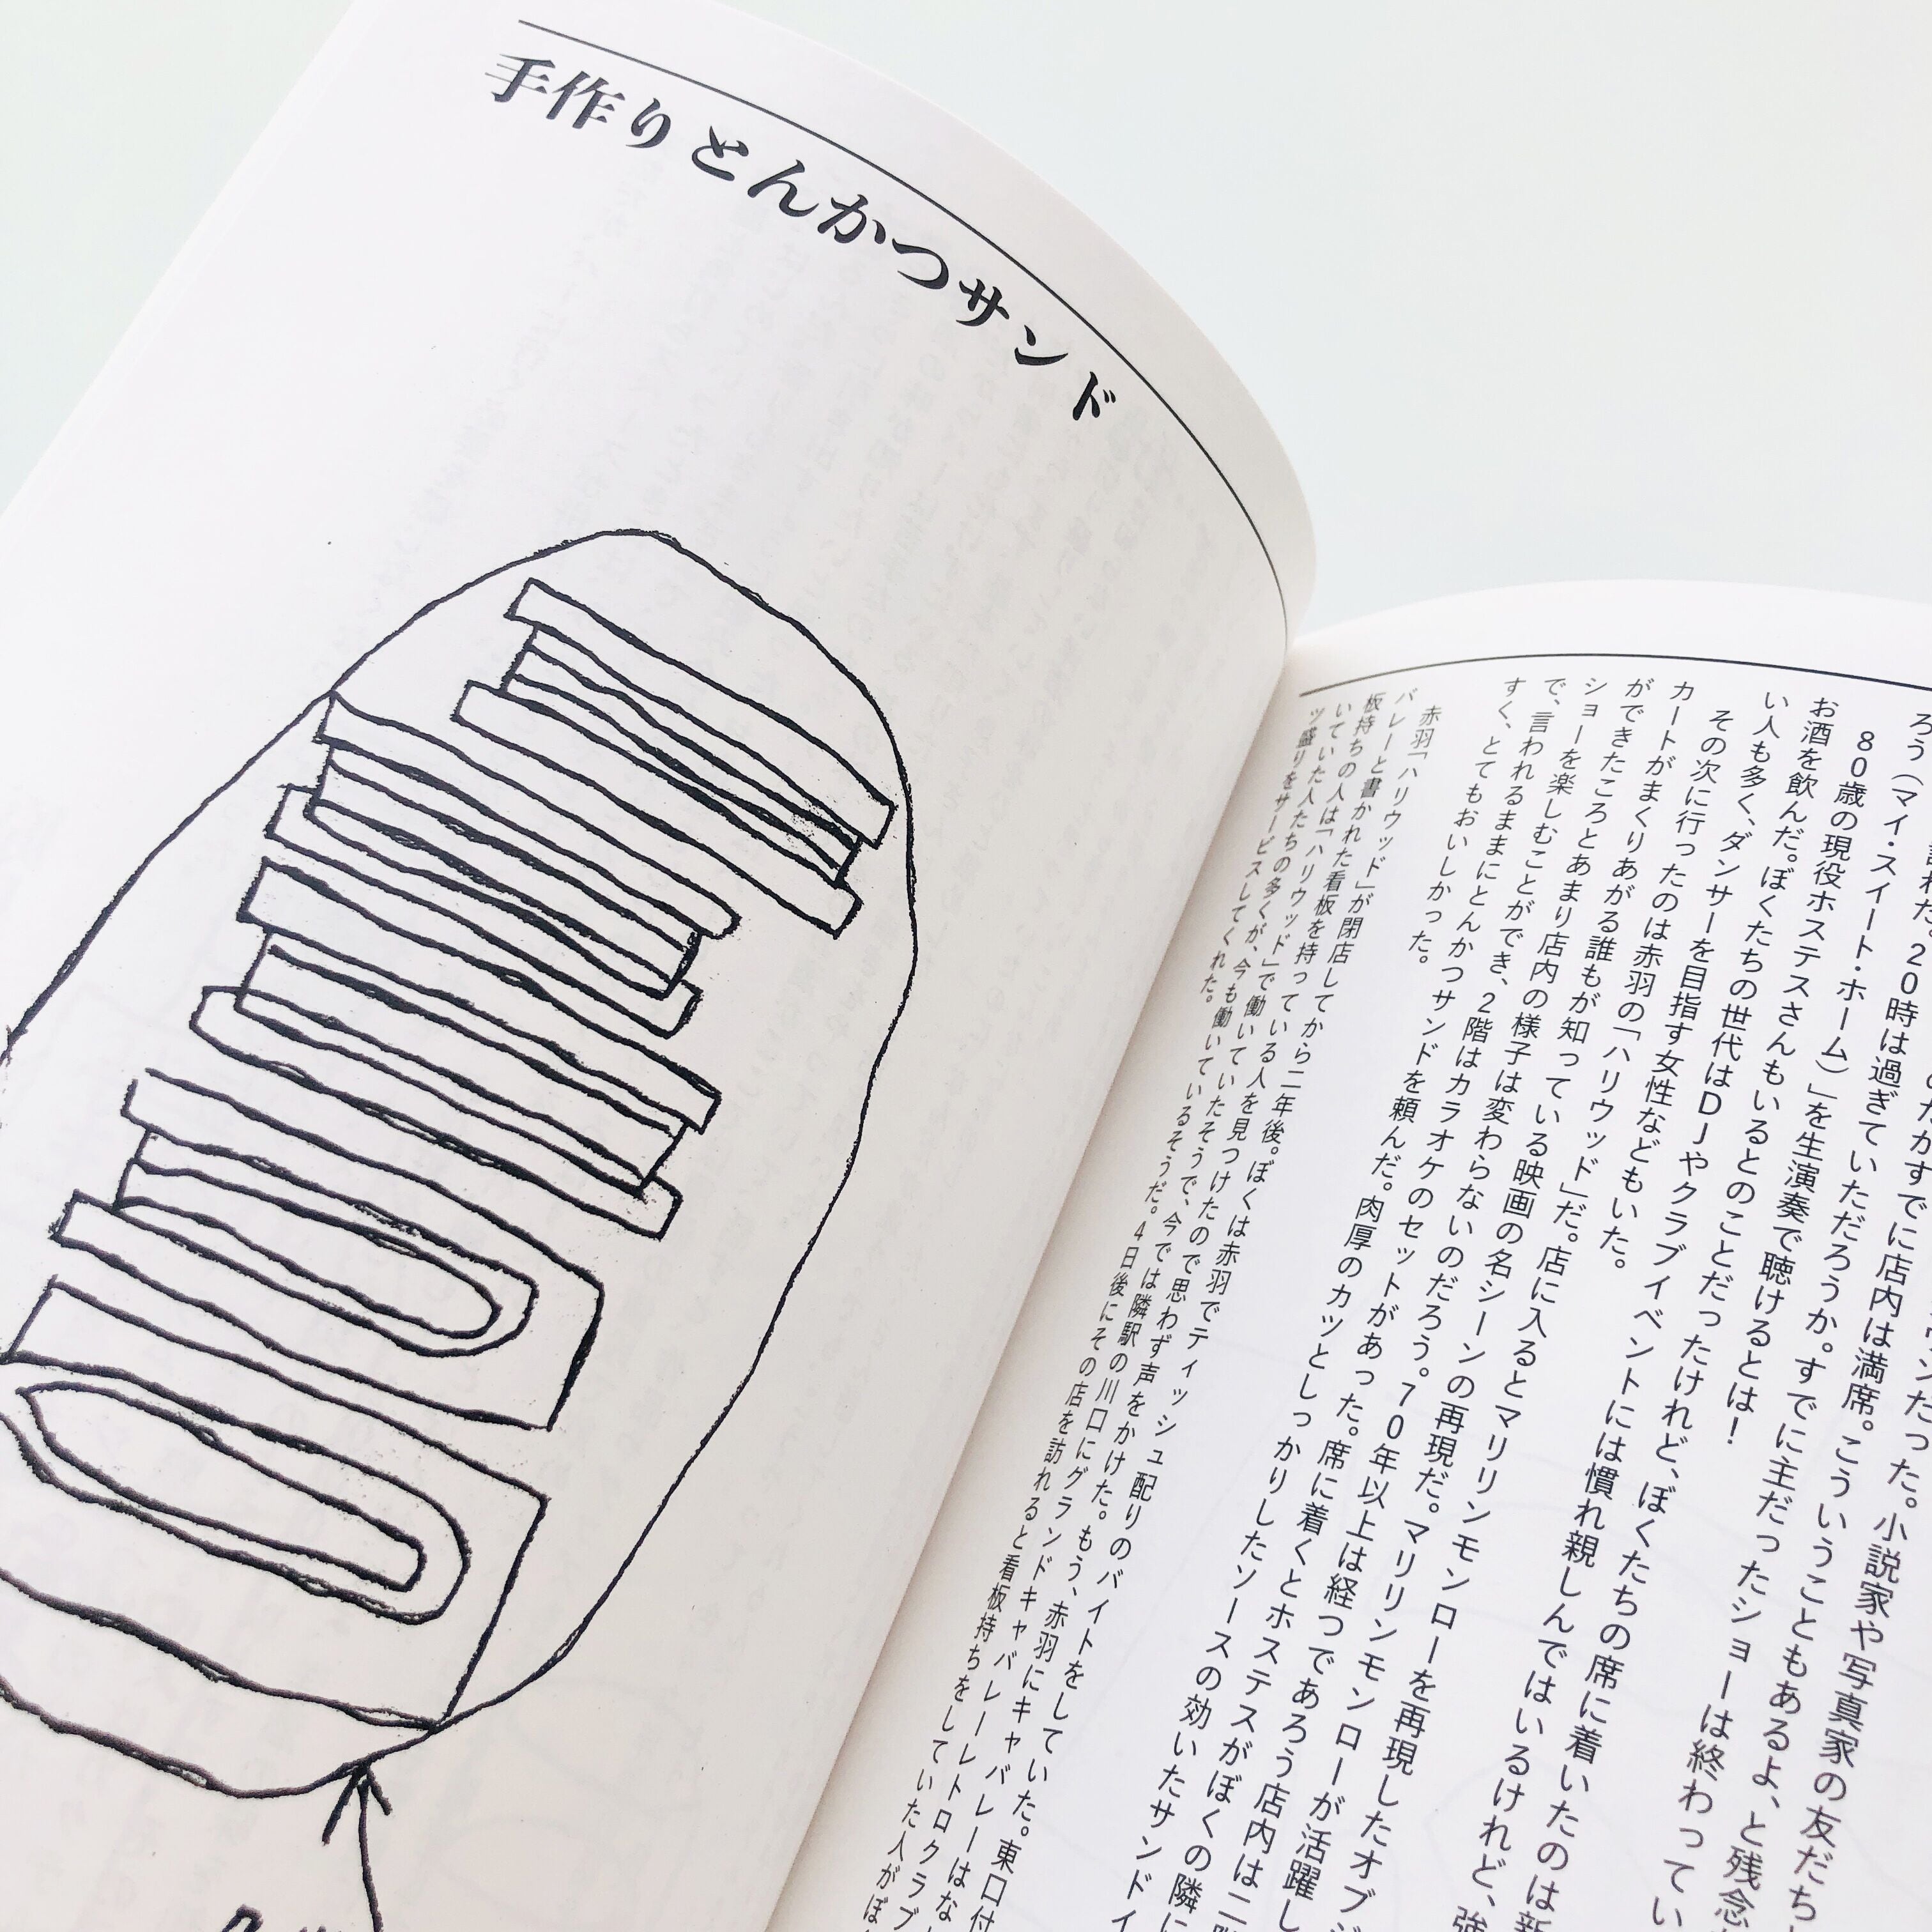 手作りとんかつサンド
ンだった。小説家や写真家の友だち
すでに店内は満席。こういうこともあるよ、と残念
れた。20時は過ぎていただろうか。すでに主だったショーは終わってい
ろう（マイ・スイート・ホーム）」を生演奏で聴けるとは！
80歳の現役ホステスさんもいるとのことだったけれど、ぼくたちの席に着いたのは新
お酒を飲んだ。ぼくたちの世代はDJやクラブイベントには慣れ親しんではいるけれど、強
い人も多く、ダンサーを目指す女性などもいた。
その次に行ったのは赤羽の「ハリウッド」だ。店に入るとマリリンモンローを再現したオブジ
カートがまくりあがる誰もが知っている映画の名シーンの再現だ。マリリンモンローが活躍し
ができたころとあまり店内の様子は変わらないのだろう。70年以上は経つであろう店内は二階
ショーを楽しむことができ、2階はカラオケのセットがあった。席に着くとホステスがぼくの隣に
で、言われるままにとんかつサンドを頼んだ。肉厚のカツとしっかりしたソースの効いたサンドイ
すく、とてもおいしかった。
赤羽「ハリウッド」が閉店してから二年後。ぼくは赤羽でティッシュ配りのバイトをしていた。東口付
バレーと書かれた看板を持っている人を見つけたので思わず声をかけた。もう、赤羽にキャバレーはな
板持ちの人は「ハリウッド」で働いていたそうで、今では隣駅の川口にグランドキャバレーレトロクラブ
いていた人たちの多くが、今も働いているそうだ。4日後にその店を訪れると看板持ちをしていた人がぼ
ッ盛りをサービスしてくれた。